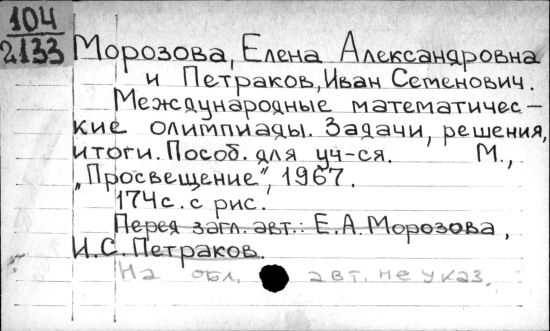 104
2133
Морозова, Елена Александровна
и Петраков, Иван Семенович.
Международные математичес-
кие олимпиады. Задачи, решения,
итоги. Пособ. для уч-ся. М.,
„Просвещение", 1967.
174с. с рис.
Перед загл. авт.: Е.А. Морозова,
И.С. Петраков.
На обл. авт. не указ.